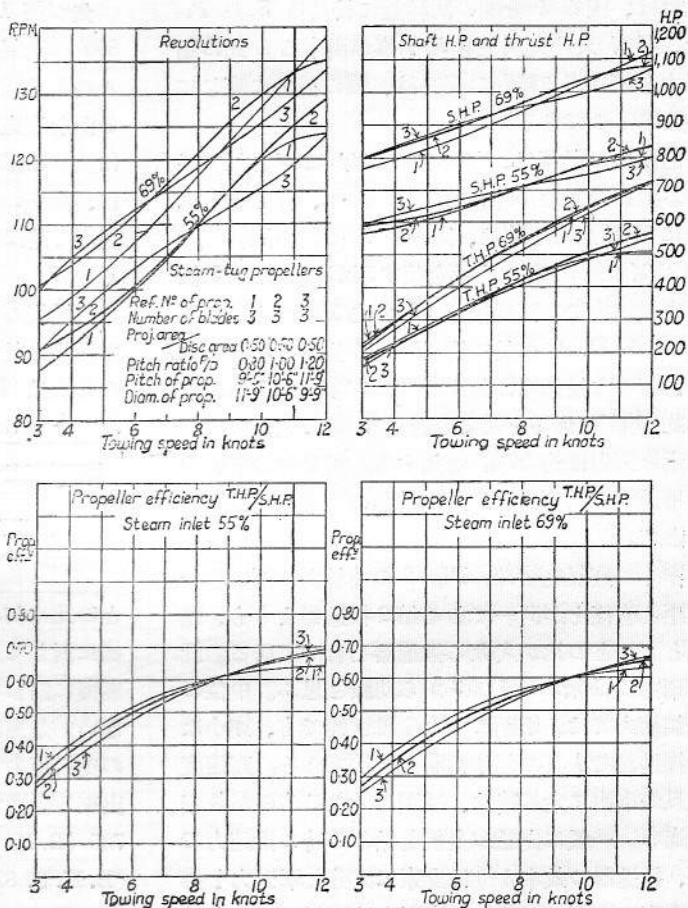 RPM
Revolutions
130
120
110
100
90
80
69%
55%
1
2
3
Steam-tug propellers
Ref. Nº of prop. 1 2 3
Number of blades 3 3 3
Proj. area
Disc area 0·50 0·50 0·50
Pitch ratio P/D 0·80 1·00 1·20
Pitch of prop. 9'-5" 10'-6" 11'-9"
Diam. of prop. 11'-9" 10'-6" 9'-9"
3 4 6 8 10 12
Towing speed in knots
Shaft H.P. and thrust H.P.
H.P.
1,200
1,100
1,000
900
800
700
600
500
400
300
200
100
S.H.P. 69%
S.H.P. 55%
T.H.P. 69%
T.H.P. 55%
3 4 6 8 10 12
Towing speed in knots
Propeller efficiency T.H.P./S.H.P.
Steam inlet 55%
Prop
effy
0·80
0·70
0·60
0·50
0·40
0·30
0·20
0·10
3 4 6 8 10 12
Towing speed in knots
Propeller efficiency T.H.P./S.H.P.
Steam inlet 69%
Prop
effy
0·80
0·70
0·60
0·50
0·40
0·30
0·20
0·10
3 4 6 8 10 12
Towing speed in knots